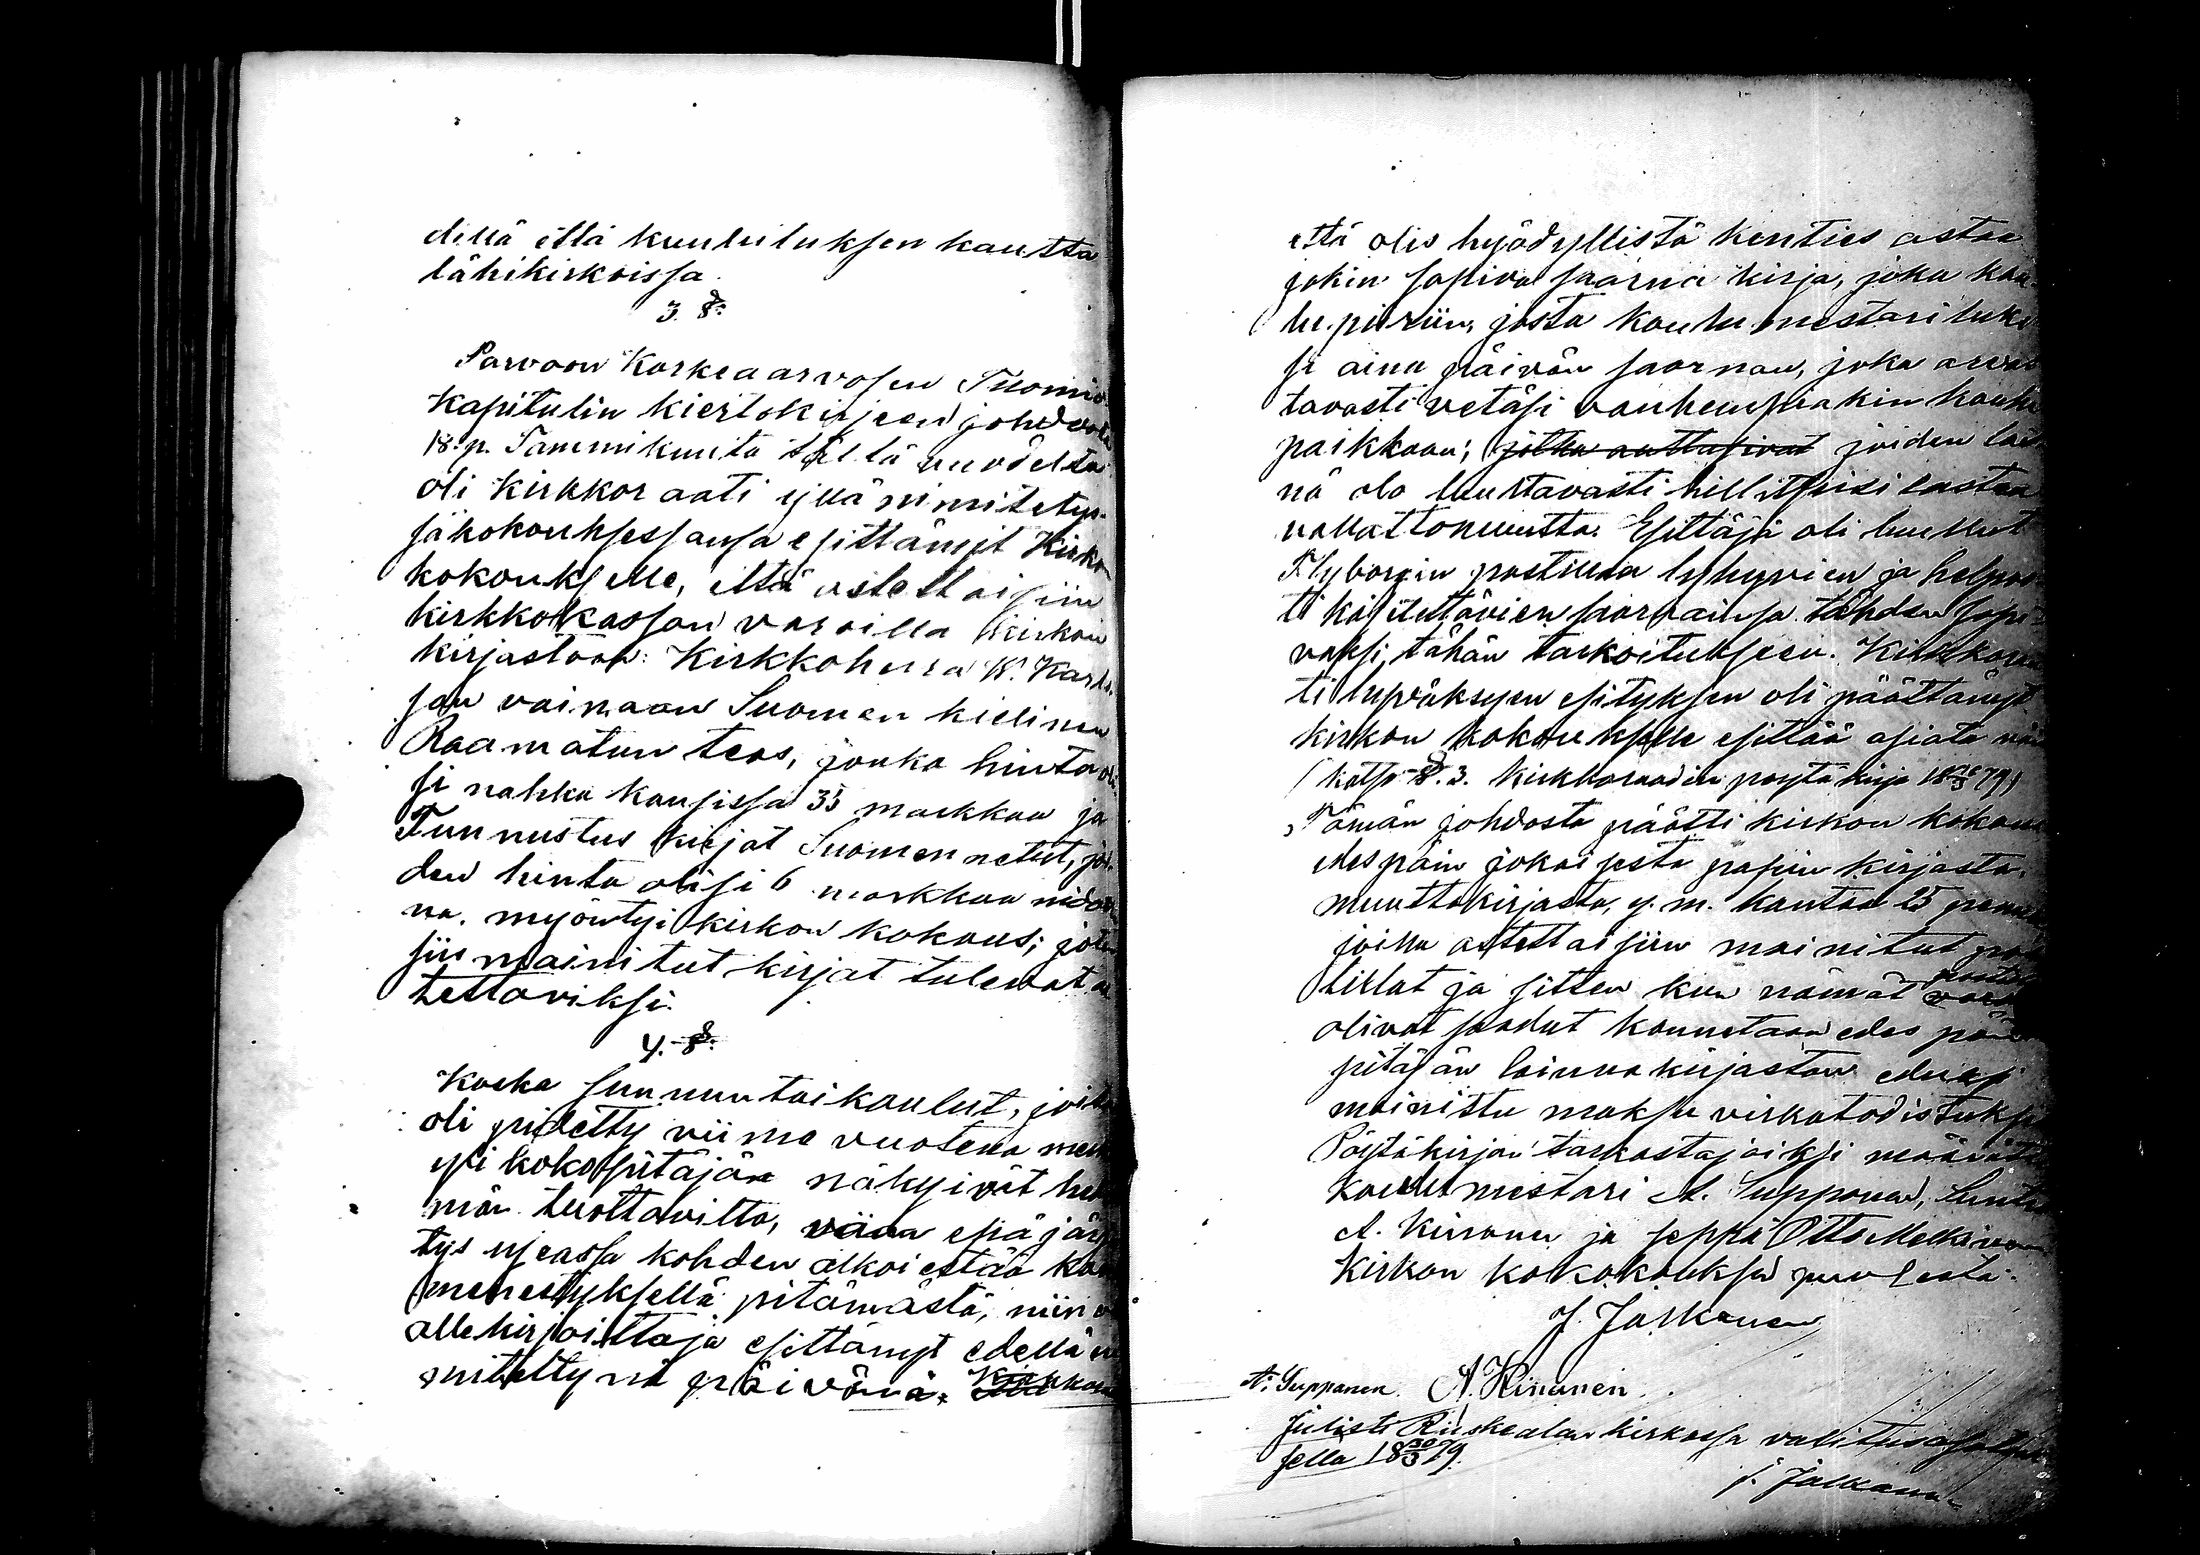 dillä että kuuluituksen kautta
lähikirkoissa.
3. §.
Porvoon Korkeaarvosen Tuomio
kapitulin kiertokirjeen johdosta
18. p. Tammikuuta tältä vuodelta
oli kirkkoraati yllä nimitetys-
säkokouksessansa esittänyt Kirkon
kokoukselle, että ostettaisiin
kirkkokassan varoilla kirkon
kirjastoon: Kirkkoherra K. Karls-
son vainaan Suomen kielinen
Raamatun teos, jonka hinta oli-
si nahka kansissa 35 markkaa ja
Tunnustus kirjat Suomennetut, joi-
den hinta olisi 6 markkaa nidot
na. myöntyi kirkon kokous; joten
siis mainitut kirjat tulevat os
tettaviksi.
4. §.
Koska sunnuntaikoulut, joita
oli pidetty viime vuotena
ysi koko pitäjän näkyivät
män tuottavilta, vaan epäjärjes
tys useassa kohden alkoi estää
menestyksellä pitämästä, niin oli
allekirjoittaja esittänyt edellä
mitettynä päivänä. Kirkkoraa
että olis hyödyllistä kenties ostaa
jokin sopiva saarna kirja, joka kou-
lu piiriin, josta koulumestari luki
si aina päivän saarnan, joka arvat
tavasti vetäsi vanhempiakin koulu
paikkaan; jotka auttasivat joiden läs
nä olo luultavasti hillitsisi lasten
vallattomuutta. Esittäjä oli luullut
Flyborgin postillan lyhyvien ja helpos
ti käsitettävien saarnainsa tähden sopi-
vaksi tähän tarkoitukseen. Kirkkoraa
ti hyväksyen esityksen oli päättänyt
kirkon kokoukselle esittää asiata
(katso §. 3. Kirkkoraadin pöytäkirja 18 79)
Tämän johdosta päätti kirkon kokous
edespäin jokaisesta papin kirjasta,
muuttokirjasta, y. m. kantaa 25 penniä
joilla ostettaisiin mainitut pos
tillat ja sitten kun nämät
olivat saadut kannetaan edes päin
pitäjän lainakirjaston eduksi
mainittu maksu virkatodistuksis
Pöytäkirjan tarkastajaiksi määrättiin
Koulumestari A. Suppanen, Luutn
A. Kinanen ja seppä Otto Melkinen
Kirkon kokokouksen puolesta.
J. Jalkanen
A. Suppanen. A. Kinanen.
Julisti Ruskealan kirkossa valitusosotuk
sella 18 30/3 79.
J. Jalkanen